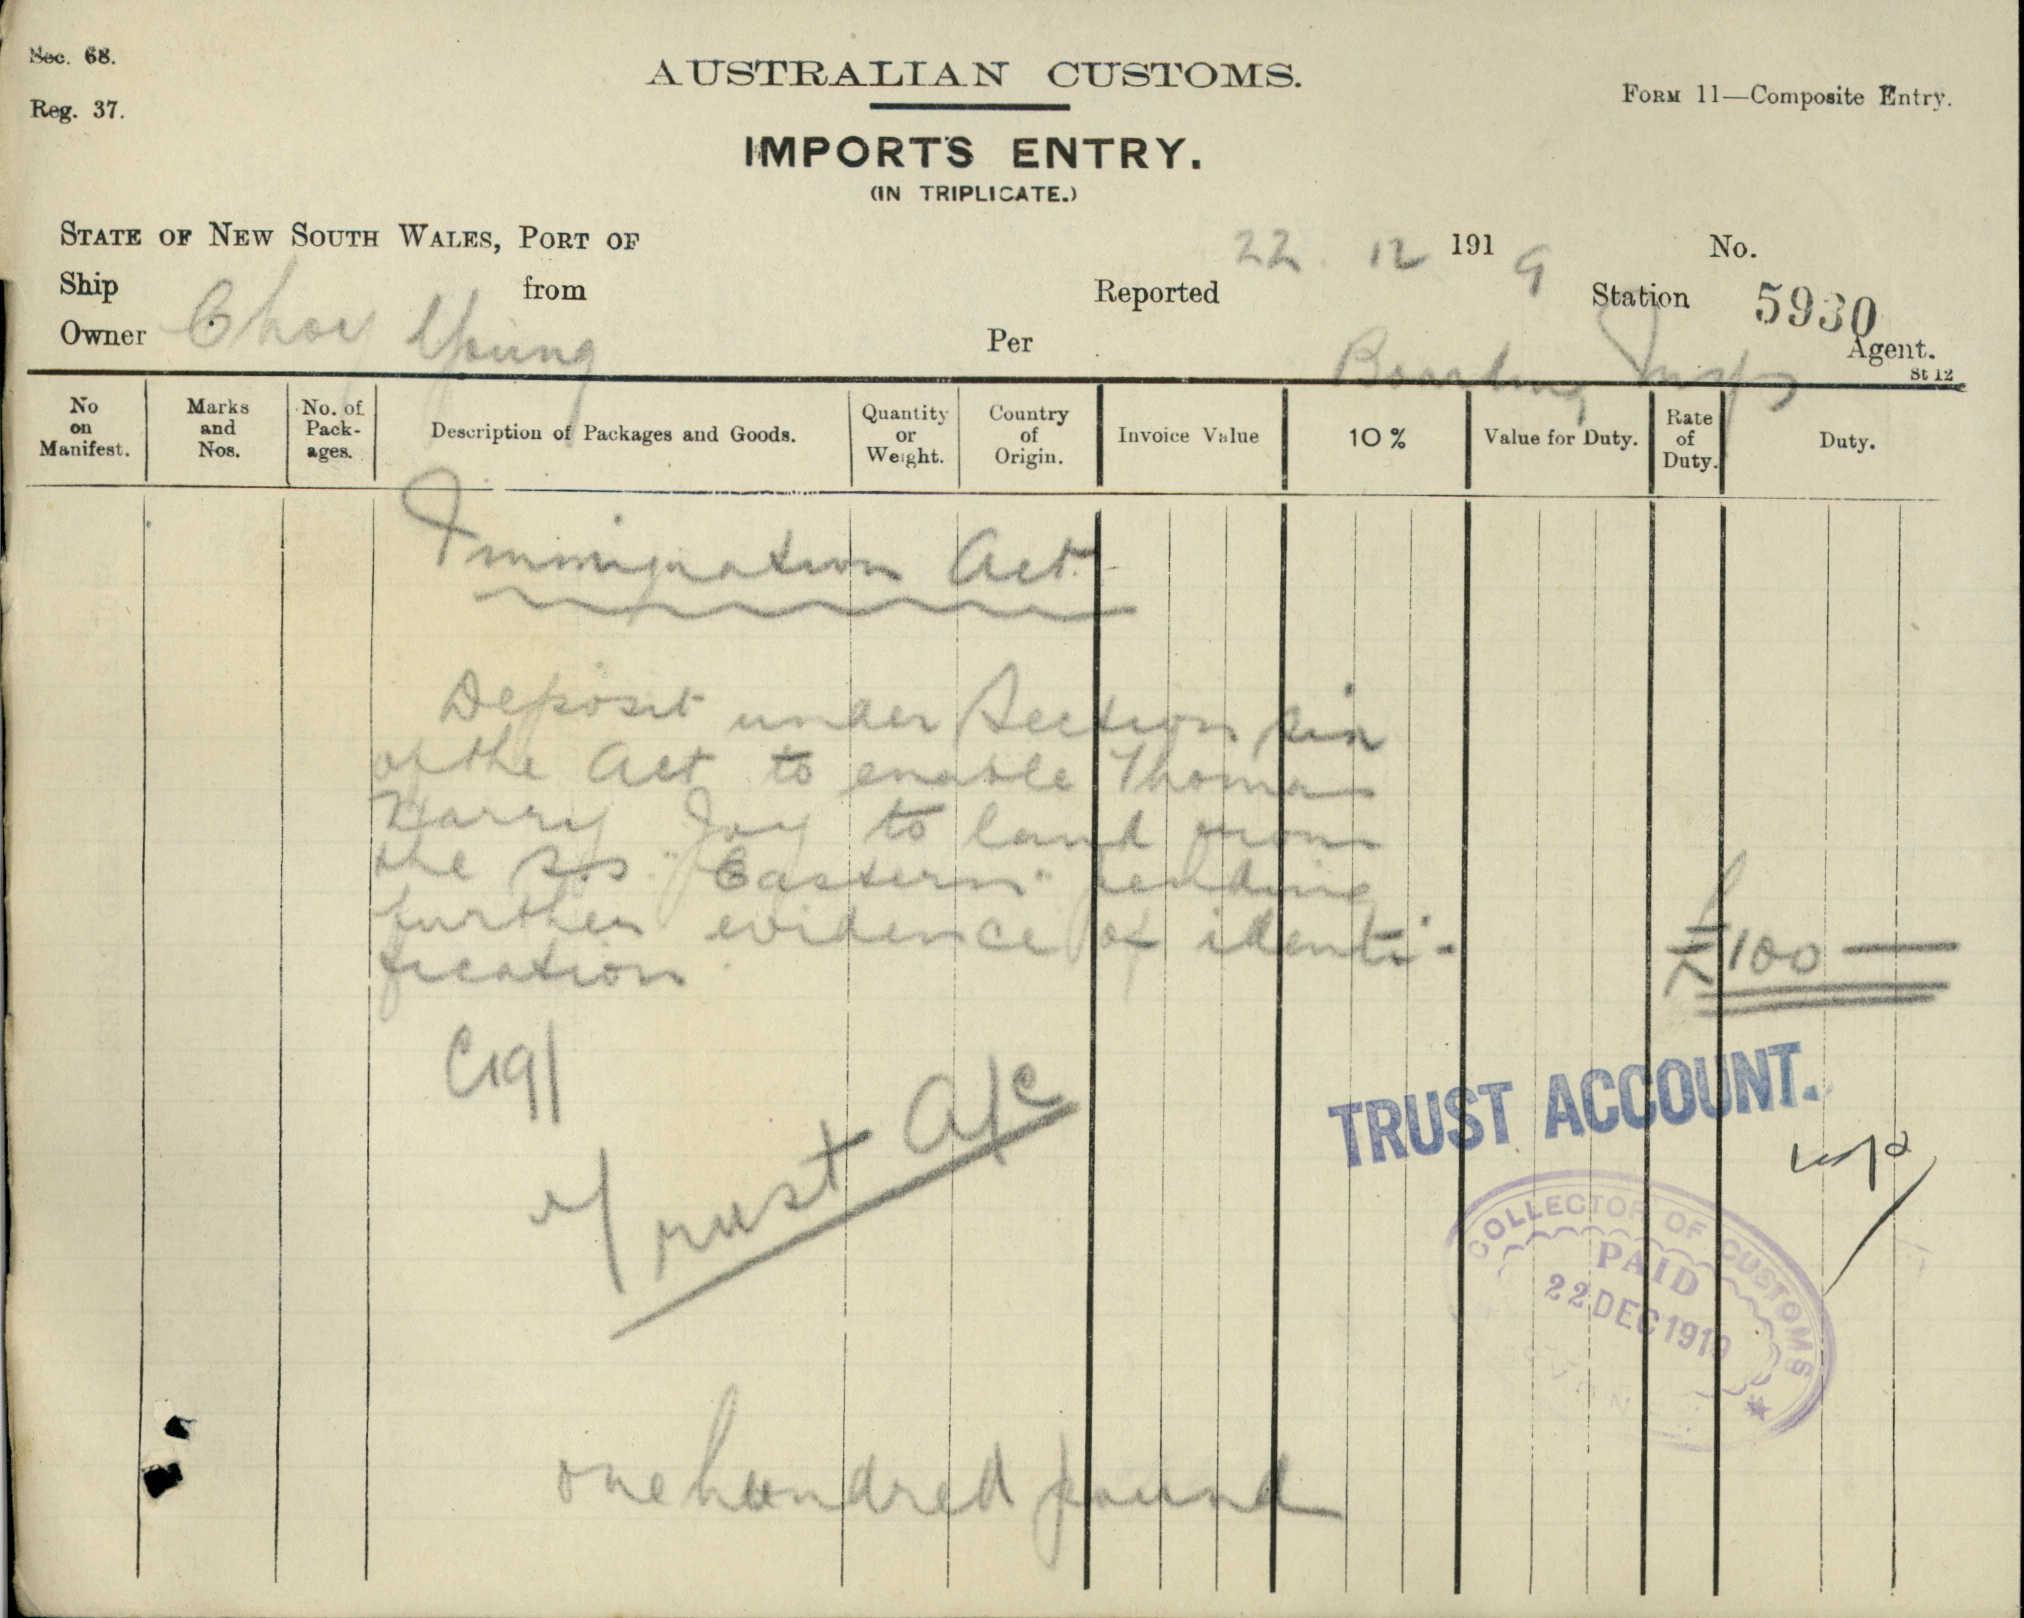 Sec. 68.
Reg. 37.
AUSTRALIAN CUSTOMS.
Form 11—Composite Entry.
IMPORTS ENTRY.
(IN TRIPLICATE.)
State of New South Wales, Port of 22. 12 1919 No.
Ship from Reported Station 5930
Owner Choy Young Per Boarding Insp Agent.
St 12
No on Manifest.
Marks and Nos.
No. of Pack-ages.
Description of Packages and Goods.
Quantity or Weight.
Country of Origin.
Invoice Value
10 %
Value for Duty.
Rate of Duty.
Duty.
Immigration Act
Deposit under Section six
of the Act to enable Thomas
Harry Joy to land from
the s.s. "Eastern" pending
further evidence of identi-
fication
£100 —
C19/
Trust A/c
TRUST ACCOUNT.
COLLECTOR OF CUSTOMS
PAID
22 DEC 1919
one hundred pound